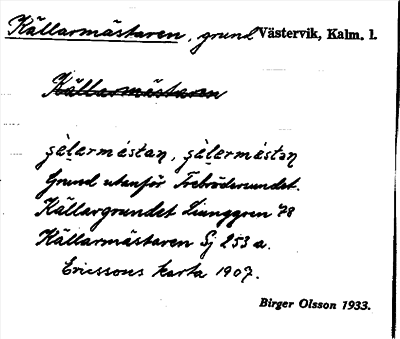 Källarmästaren, grund Västervik, Kalm. l.
Källarmästaren
ʂàl̥armástaṇ, ʂàl̥ermástəṇ
Grund utanför Trebrödersundet.
Källargrundet Ljunggren 78
Källarmästaren Sj 253 a.
Ericssons karta 1907.
Birger Olsson 1933.